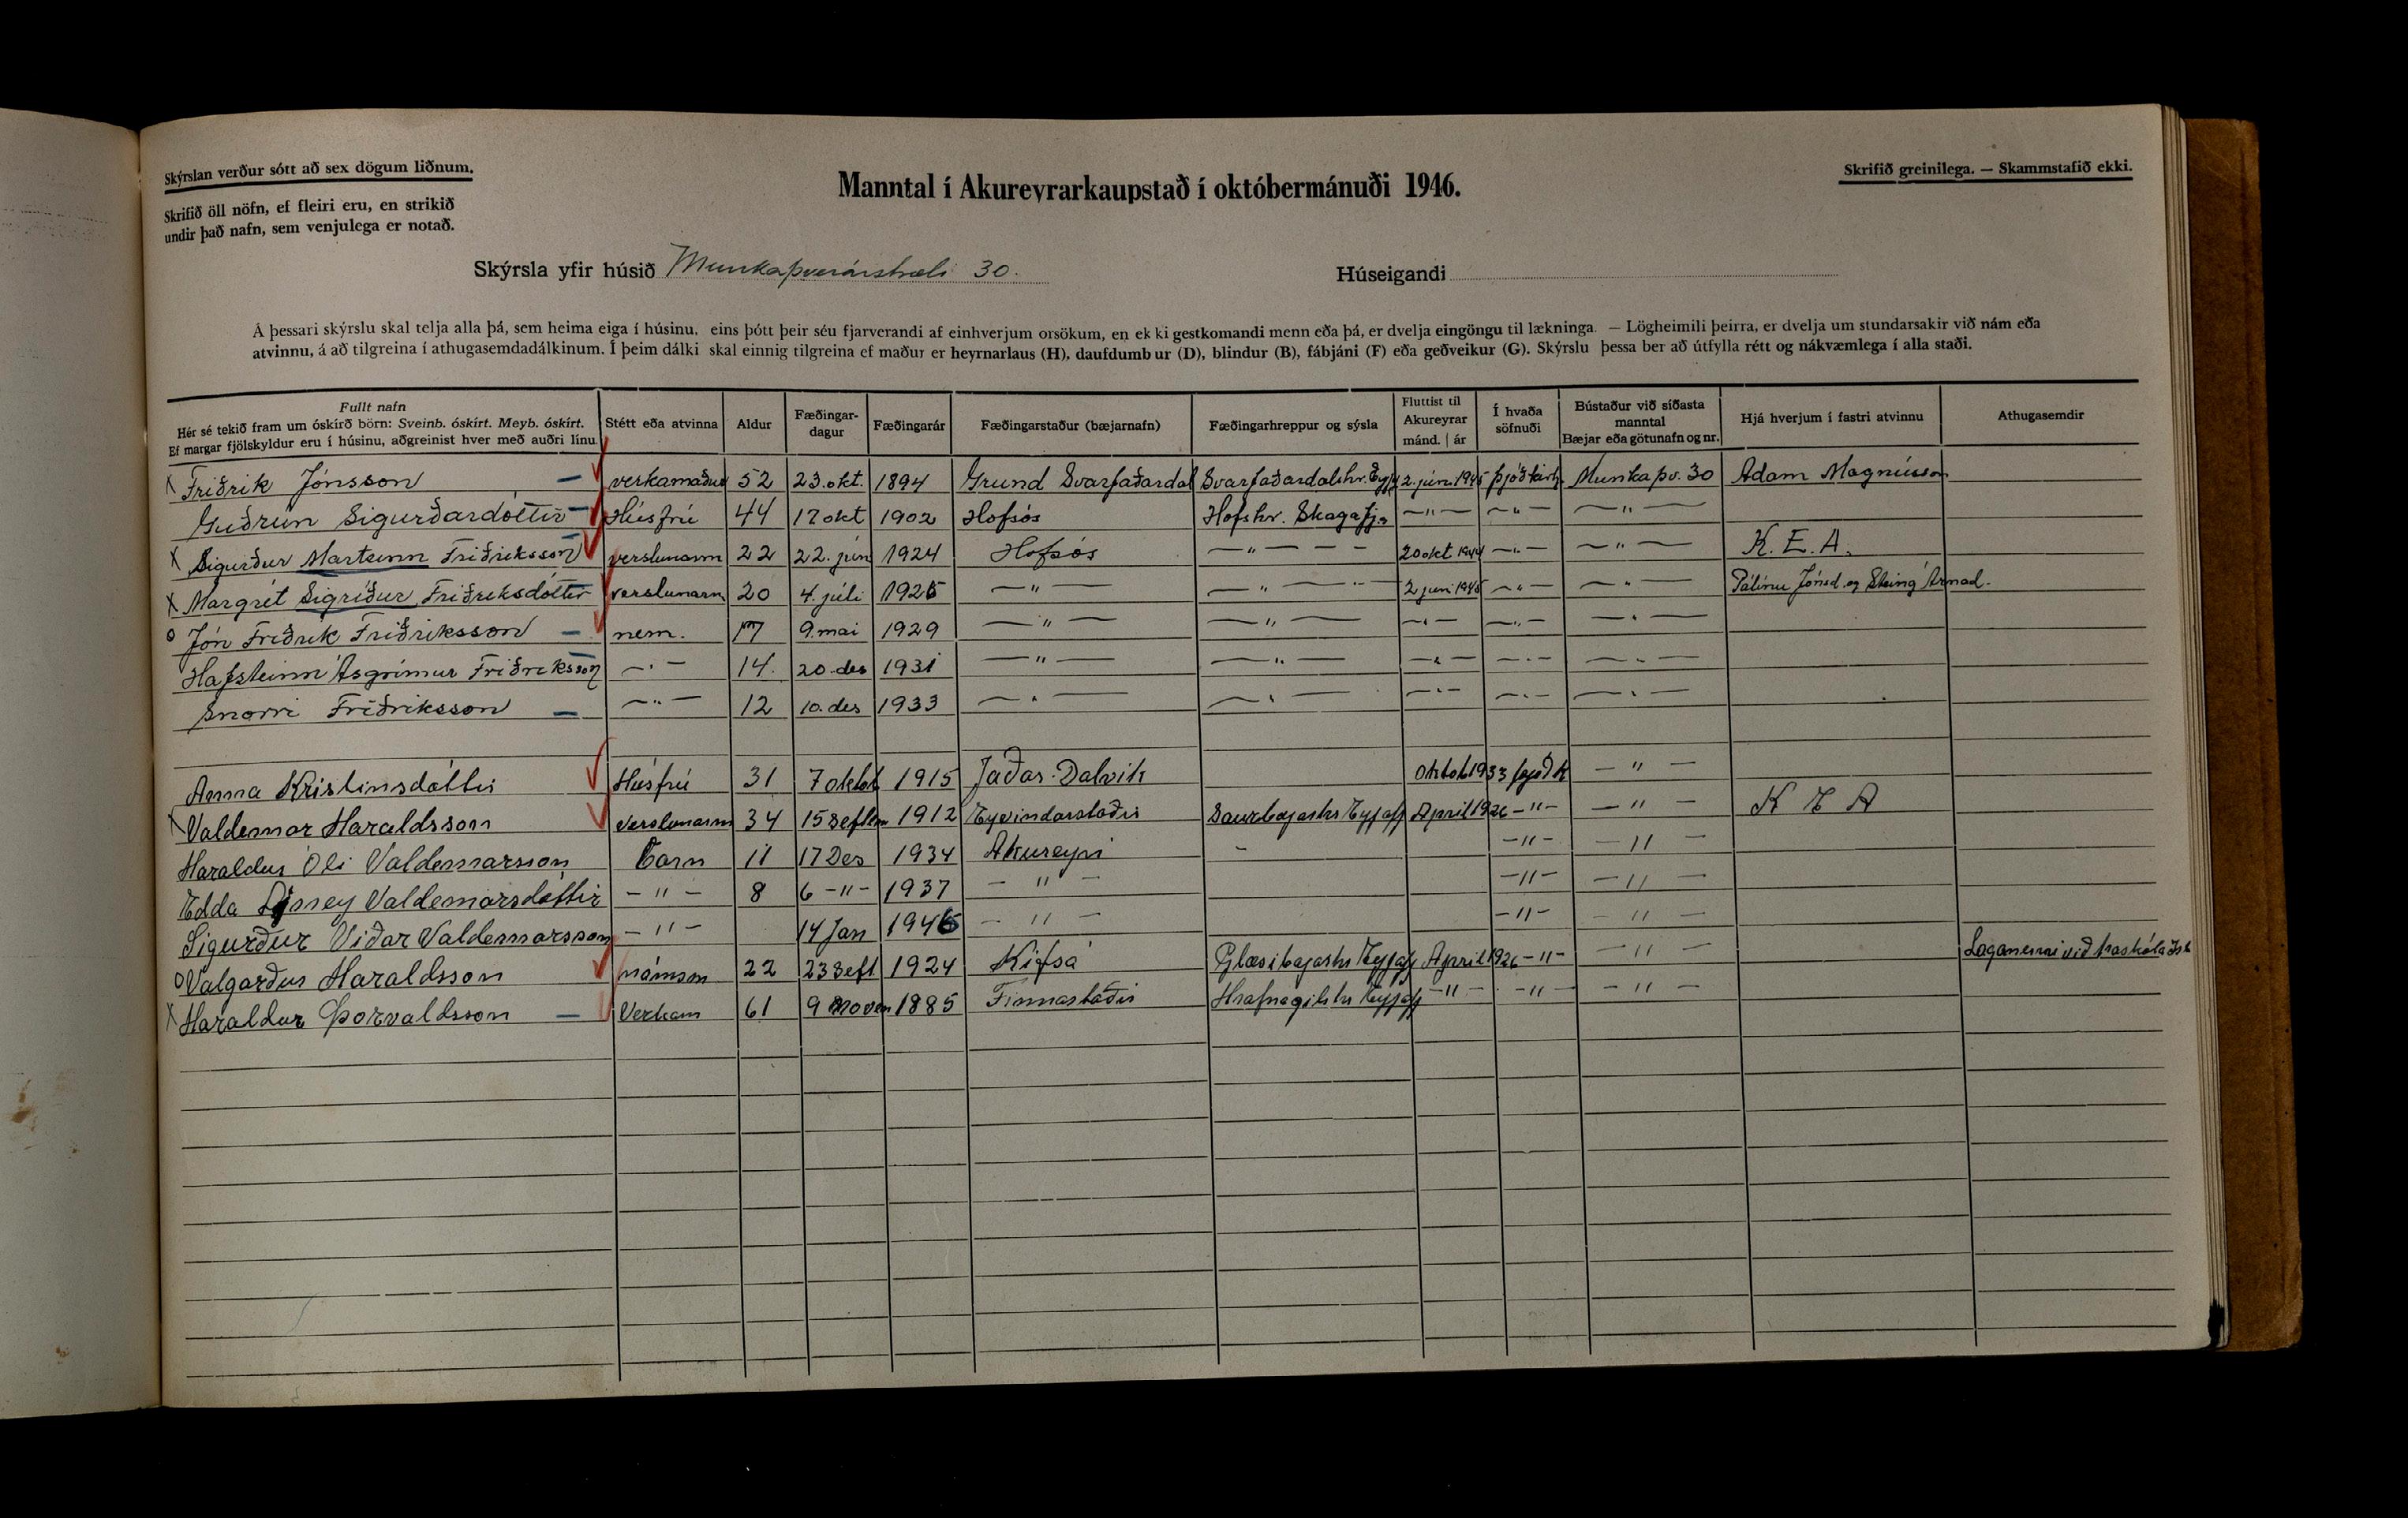 Skýrslan verður sótt að sex dögum liðnum.
Skrifið öll nöfn, ef fleiri eru, en strikið
undir það nafn, sem venjulega er notað.
Manntal í Akureyrarkaupstað í októbermánuði 1946.
Skrifið greinilega. — Skammstafið ekki.
Skýrsla yfir húsið Munkaþverárstræti 30.
Húseigandi
Á þessari skýrslu skal telja alla þá, sem heima eiga í húsinu, eins þótt þeir séu fjarverandi af einhverjum orsökum, en ekki gestkomandi menn eða þá, er dvelja eingöngu til lækninga. — Lögheimili þeirra, er dvelja um stundarsakir við nám eða
atvinnu, á að tilgreina í athugasemdadálkinum. Í þeim dálki skal einnig tilgreina ef maður er heyrnarlaus (H), daufdumbur (D), blindur (B), fábjáni (F) eða geðveikur (G). Skýrslu þessa ber að útfylla rétt og nákvæmlega í alla staði.
Fullt nafn Hér sé tekið fram um óskírð börn: Sveinb. óskírt. Meyb. óskírt. Ef margar fjölskyldur eru í húsinu, aðgreinist hver með auðri línu. Stétt eða atvinna Aldur Fæðingardagur Fæðingarár Fæðingarstaður (bæjarnafn) Fæðingarhreppur og sýsla Fluttist til Akureyrar mánd. | ár Í hvaða söfnuði Bústaður við síðasta manntal Bæjar eða götunafn og nr. Hjá hverjum í fastri atvinnu Athugasemdir
x Friðrik Jónsson — verkamaður 52 23. okt. 1894 Grund Svarfaðardal Svarfaðardalshr. Eyjf 2. júní 1945 þjóðkirk. Munkaþv. 30 Adam Magnússon
Guðrún Sigurðardóttir — Húsfrú 44 17 okt 1902 Hofsós Hofshr. Skagafj. —"— —"— —"—
x Sigurður Marteinn Friðriksson verslunarm 22 22. jún 1924 Hofsós —"— — — 20 okt 1944 —"— —"— K. E. A.
x Margrét Sigríður Friðriksdóttir verslunarm 20 4. júli 1926 —"— —"— 2 juni 1945 —"— —"— Pálínu Jónsd. og Steing Arnad.
o Jón Friðrik Friðriksson — nem. 17 9. mai 1929 —"— —"— —"— —"— —"—
Hafsteinn Ásgrímur Friðriksson —"— 14. 20. des 1931 —"— —"— —"— —"— —"—
Snorri Friðriksson — —"— 12 10. des 1933 —"— —"— —"— —"— —"—
Anna Kristinsdóttir Húsfrú 31 7 októb 1915 Jaðar. Dalvik Oktob 1933 þjóðk —"—
x Valdemar Haraldsson Verslunarm 34 15 septem 1912 Eyvindarstaðir Saurbæjarhr Eyjafj April 1926 —"— —"— K E A
Haraldur Óli Valdemarsson Barn 11 17 Des 1934 Akureyri - —"— —"—
Edda Valdemarsdóttir —"— 8 6 —"— 1937 —"— —"— —"—
Sigurður Viðar Valdemarsson —"— 14 Jan 1946 —"— —"— —"—
o Valgarður Haraldsson námsm 22 23 Sept 1924 Kífsá Glæsibæjarhr Eyjafj April 1926 —"— —"— Laganemi við háskóla Ísl
x Haraldur Þorvaldsson — Verkam 61 9 Noven 1885 Finnastaðir Hrafnagilshr Eyjafj —"— —"— —"—